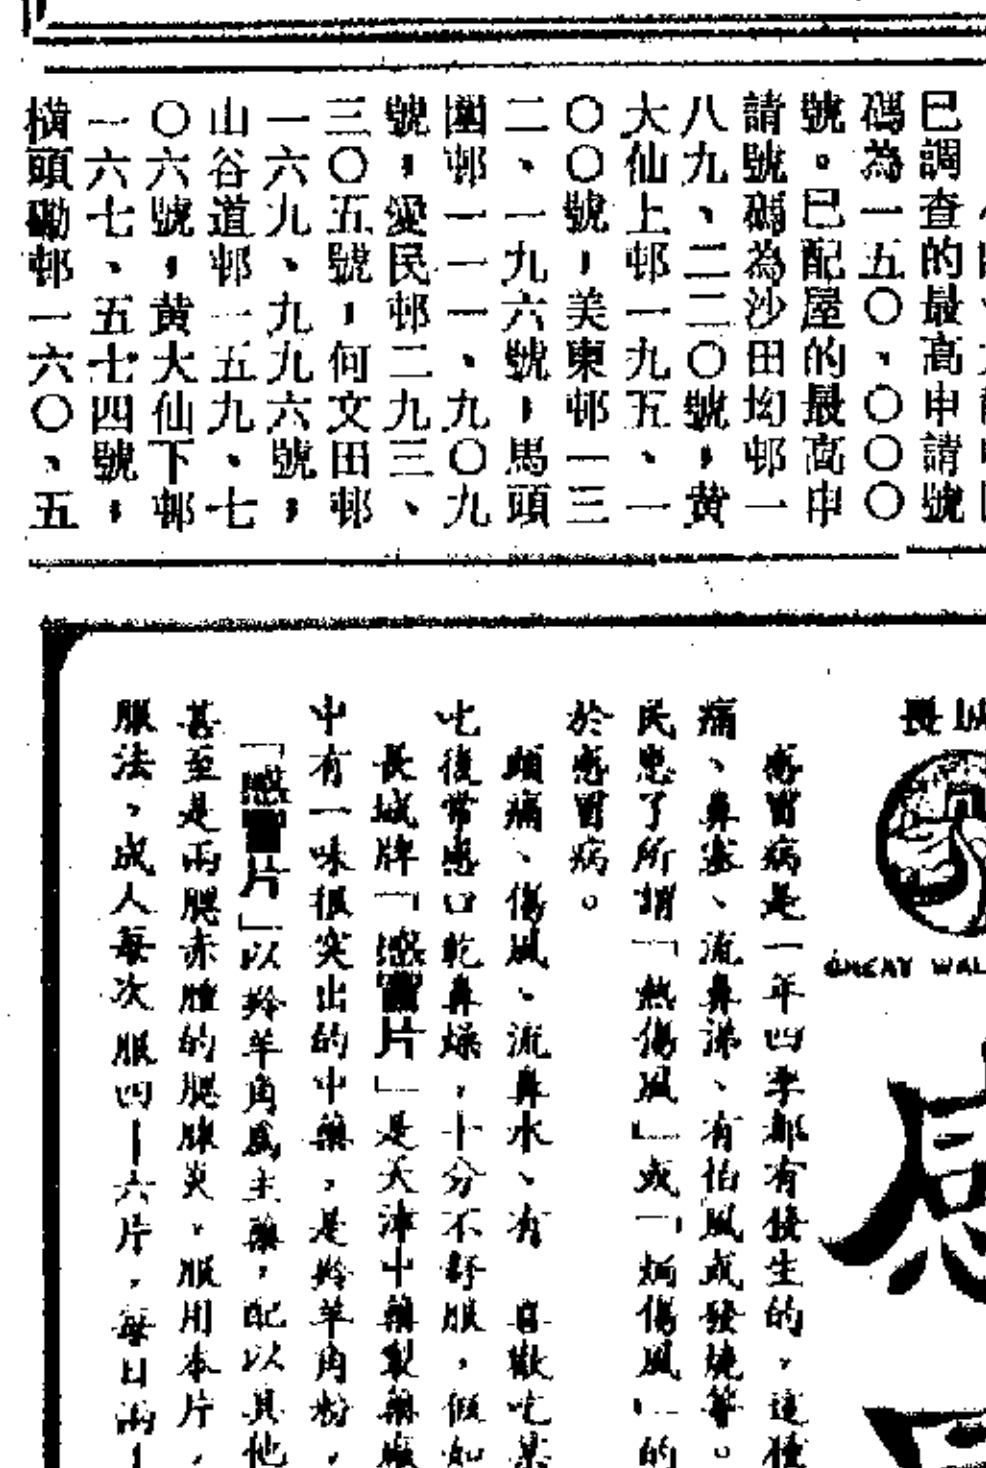 已調查的最高申請號
碼為一五〇、〇〇〇
號。已配屋的最高申
請號碼為沙田坳邨一
八九、二二〇號,黃
大仙上邨一九五、一
〇〇號,美東邨一三
二、一九六號,馬頭
圍邨一一一、九〇九
號,愛民邨二九三、
三〇五號,何文田邨
一六九、九九六號,
山谷道邨一五九、七
〇六號,黃大仙下邨
一六七、五七四號,
橫頭磡邨一六〇、五
長城
GREAT WAL
感冒病是一年四季都有發生的,這種
痛、鼻塞、流鼻涕、有怕風或發燒等。
民患了所謂「熱傷風」或「焗傷風」的
於感冒病。
頭痛、傷風、流鼻水、有 喜歡吃某
吃後常感口乾鼻燥,十分不舒服,假如
長城牌「感冒片」是天津中藥製藥廠
中有一味很突出的中藥,是羚羊角粉,
「感冒片」以羚羊角為主藥,配以其他
甚至是兩腮赤腫的腮腺炎,服用本片,
服法,成人每次服四—六片,每日兩—